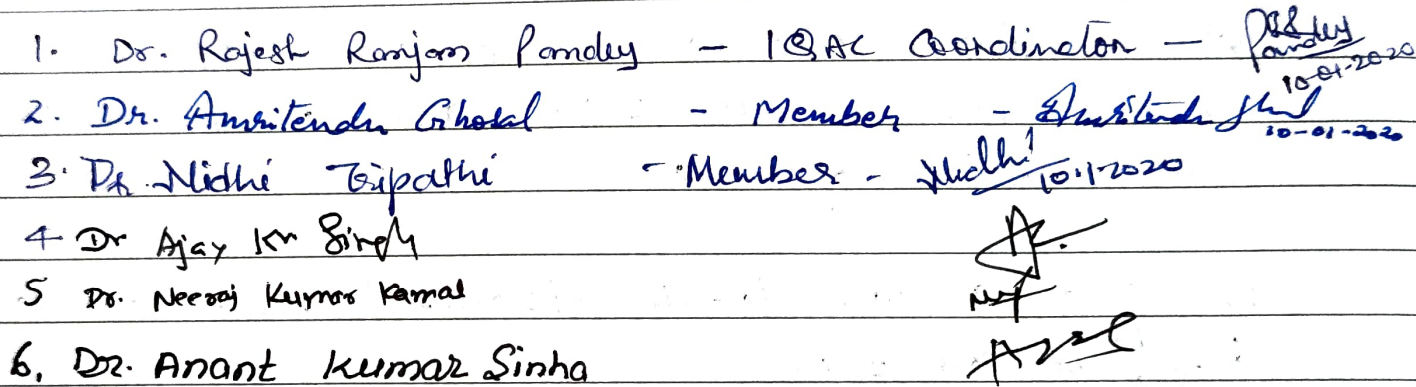 1. Dr. Rajesh Ranjan Pandey - IQAC Coordinator - Pandey 10-01-2020
2. Dr. Amritendu Ghosal - Member - Amritendu 10-01-2020
3. Dr. Nidhi Tripathi - Member - Nidhi 10.1.2020
4 Dr Ajay Kr Singh
5 Dr. Neeraj Kumar Kamal
6. Dr. Anant Kumar Sinha